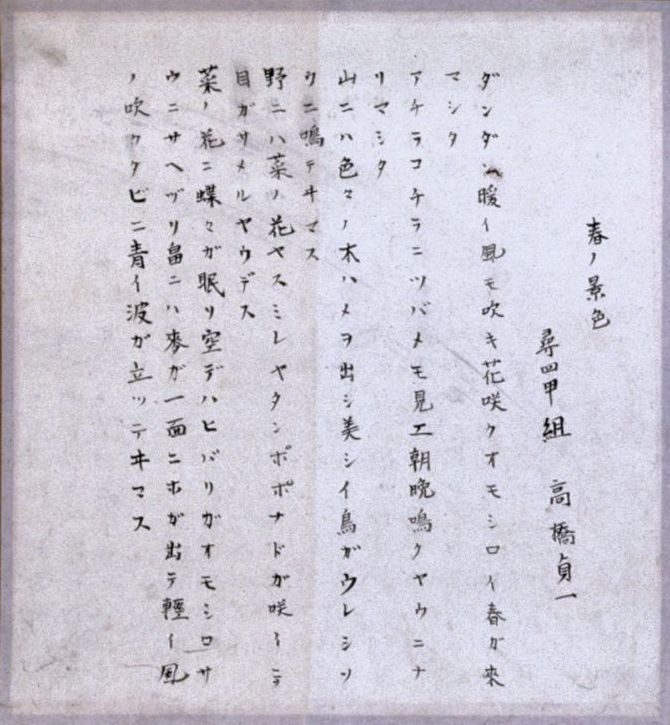 春ノ景色
尋四甲組 高橋貞一
ダンダン暖イ風モ吹キ花咲クオモシロイ春ガ來
マシタ
アチラコチラニツバメモ見エ朝晩鳴クヤウニナ
リマシタ
山ニハ色々ノ木ハメヲ出シ美シイ鳥ガウレシソ
ウニ鳴テヰマス
野ニハ菜ノ花ヤスミレヤタンポポナドガ咲イテ
目ガサメルヤウデス
菜ノ花ニ蝶々ガ眠リ空デハヒバリガオモシロサ
ウニサヘヅリ畠ニハ麥ガ一面ニホガ出テ輕イ風
ノ吹クタビニ青イ波ガ立ツテヰマス